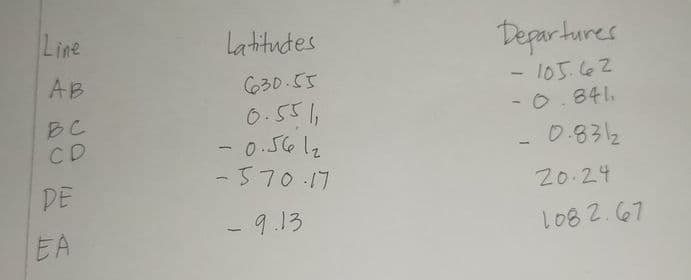 Line Latitudes Departures
AB 630.55 - 105.62
BC 0.55 l₁ - 0.84 l₁
CD - 0.56 l₂ - 0.83 l₂
DE - 570.17 20.24
EA - 9.13 1082.67